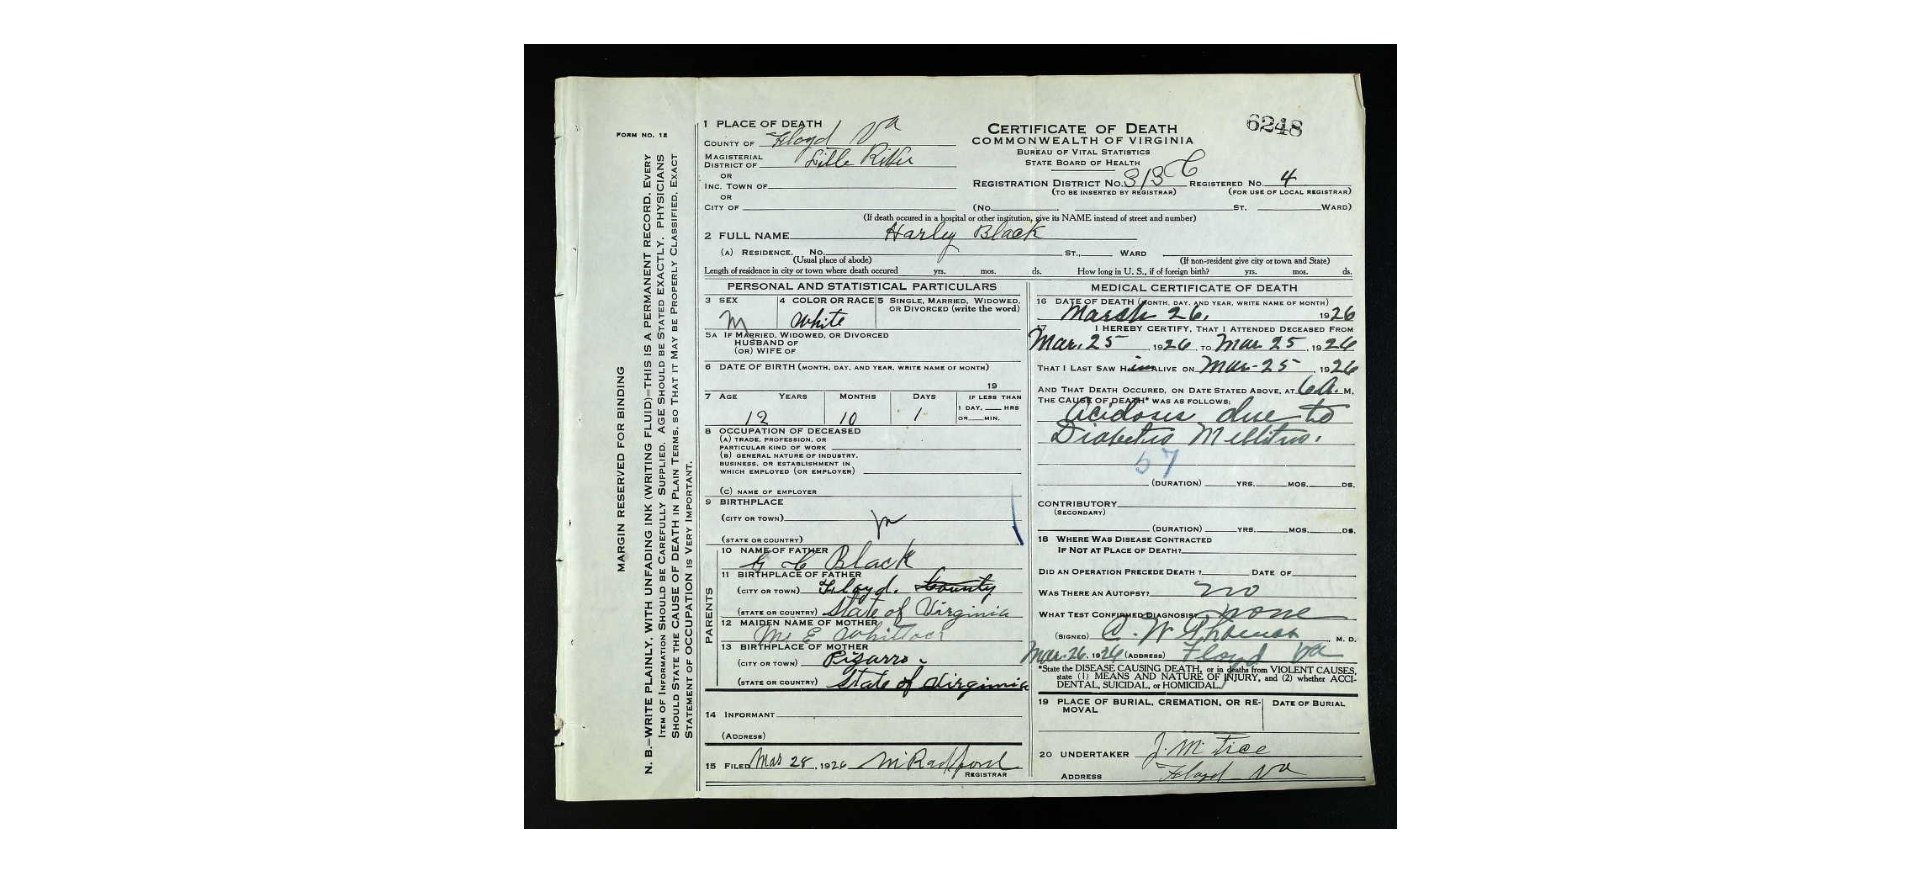 FORM NO. 12
MARGIN RESERVED FOR BINDING
N. B.—WRITE PLAINLY, WITH UNFADING INK (WRITING FLUID)—THIS IS A PERMANENT RECORD. EVERY
ITEM OF INFORMATION SHOULD BE CAREFULLY SUPPLIED. AGE SHOULD BE STATED EXACTLY. PHYSICIANS
SHOULD STATE THE CAUSE OF DEATH IN PLAIN TERMS, SO THAT IT MAY BE PROPERLY CLASSIFIED. EXACT
STATEMENT OF OCCUPATION IS VERY IMPORTANT.
1 PLACE OF DEATH
COUNTY OF Floyd Va
MAGISTERIAL
DISTRICT OF Little River
OR
INC. TOWN OF
OR
CITY OF
CERTIFICATE OF DEATH
COMMONWEALTH OF VIRGINIA
BUREAU OF VITAL STATISTICS
STATE BOARD OF HEALTH
6248
REGISTRATION DISTRICT NO. 313C REGISTERED NO. 4
(TO BE INSERTED BY REGISTRAR) (FOR USE OF LOCAL REGISTRAR)
(No. ST. WARD)
(If death occured in a hospital or other institution, give its NAME instead of street and number)
2 FULL NAME Harley Black
(A) RESIDENCE. No. ST., WARD
(Usual place of abode) (If non-resident give city or town and State)
Length of residence in city or town where death occured yrs. mos. ds. How long in U. S., if of foreign birth? yrs. mos. ds.
PERSONAL AND STATISTICAL PARTICULARS
3 SEX 4 COLOR OR RACE 5 SINGLE, MARRIED, WIDOWED,
OR DIVORCED (write the word)
M White
5A IF MARRIED, WIDOWED, OR DIVORCED
HUSBAND OF
(OR) WIFE OF
6 DATE OF BIRTH (MONTH, DAY, AND YEAR, WRITE NAME OF MONTH)
19
7 AGE YEARS MONTHS DAYS IF LESS THAN
1 DAY, HRS
OR MIN.
12 10 1
8 OCCUPATION OF DECEASED
(A) TRADE, PROFESSION, OR
PARTICULAR KIND OF WORK
(B) GENERAL NATURE OF INDUSTRY,
BUSINESS, OR ESTABLISHMENT IN
WHICH EMPLOYED (OR EMPLOYER)
(C) NAME OF EMPLOYER
9 BIRTHPLACE
(CITY OR TOWN)
(STATE OR COUNTRY)
PARENTS
10 NAME OF FATHER
G C Black
11 BIRTHPLACE OF FATHER
(CITY OR TOWN) Floyd. County
(STATE OR COUNTRY) State of Virginia
12 MAIDEN NAME OF MOTHER
E
13 BIRTHPLACE OF MOTHER
(CITY OR TOWN) Pizarro
(STATE OR COUNTRY) State of Virginia
14 INFORMANT
(ADDRESS)
15 FILED Mar 28, 1926 M Radford
REGISTRAR
MEDICAL CERTIFICATE OF DEATH
16 DATE OF DEATH (MONTH, DAY, AND YEAR, WRITE NAME OF MONTH)
March 26, 1926
17 I HEREBY CERTIFY, THAT I ATTENDED DECEASED FROM
Mar. 25 1926 TO Mar 25, 1926
THAT I LAST SAW H im ALIVE ON Mar-25 1926
AND THAT DEATH OCCURED, ON DATE STATED ABOVE, AT 6 A. M.
THE CAUSE OF DEATH* WAS AS FOLLOWS:
Acidosis due to
Diabetis Mellitus.
57
(DURATION) YRS. MOS. DS.
CONTRIBUTORY
(SECONDARY)
(DURATION) YRS. MOS. DS.
18 WHERE WAS DISEASE CONTRACTED
IF NOT AT PLACE OF DEATH?
DID AN OPERATION PRECEDE DEATH? DATE OF
WAS THERE AN AUTOPSY? no
WHAT TEST CONFIRMED DIAGNOSIS? none
(SIGNED) C. W Thomas, M. D.
Mar. 26, 1926 (ADDRESS) Floyd Va
*State the DISEASE CAUSING DEATH, or in deaths from VIOLENT CAUSES,
state (1) MEANS AND NATURE OF INJURY, and (2) whether ACCI-
DENTAL, SUICIDAL, or HOMICIDAL.
19 PLACE OF BURIAL, CREMATION, OR RE-
MOVAL
DATE OF BURIAL
20 UNDERTAKER J. M. Tice
ADDRESS Floyd Va